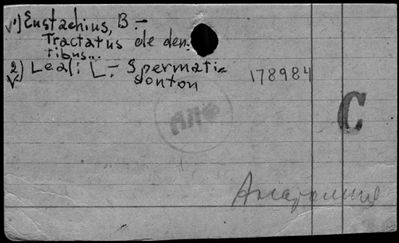 √1) Eustachius, B. –
Tractatus de den-
tibus...
√2) Leal: L – Spermati-
zonton
178984
C
Анатомия